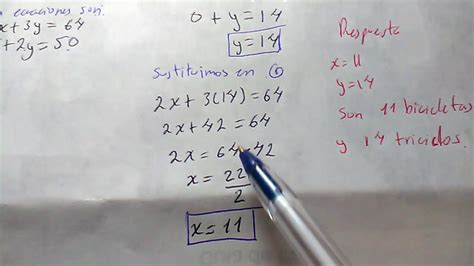 ecuaciones son:
x+3y=64
+2y=50
0+y=14
y=14
Sustituimos en ①
2x+3(14)=64
2x+42=64
2x=64-42
x=22
2
x=11
Respuesta
x=11
y=14
Son 11 bicicletas
y 14 triciclos.